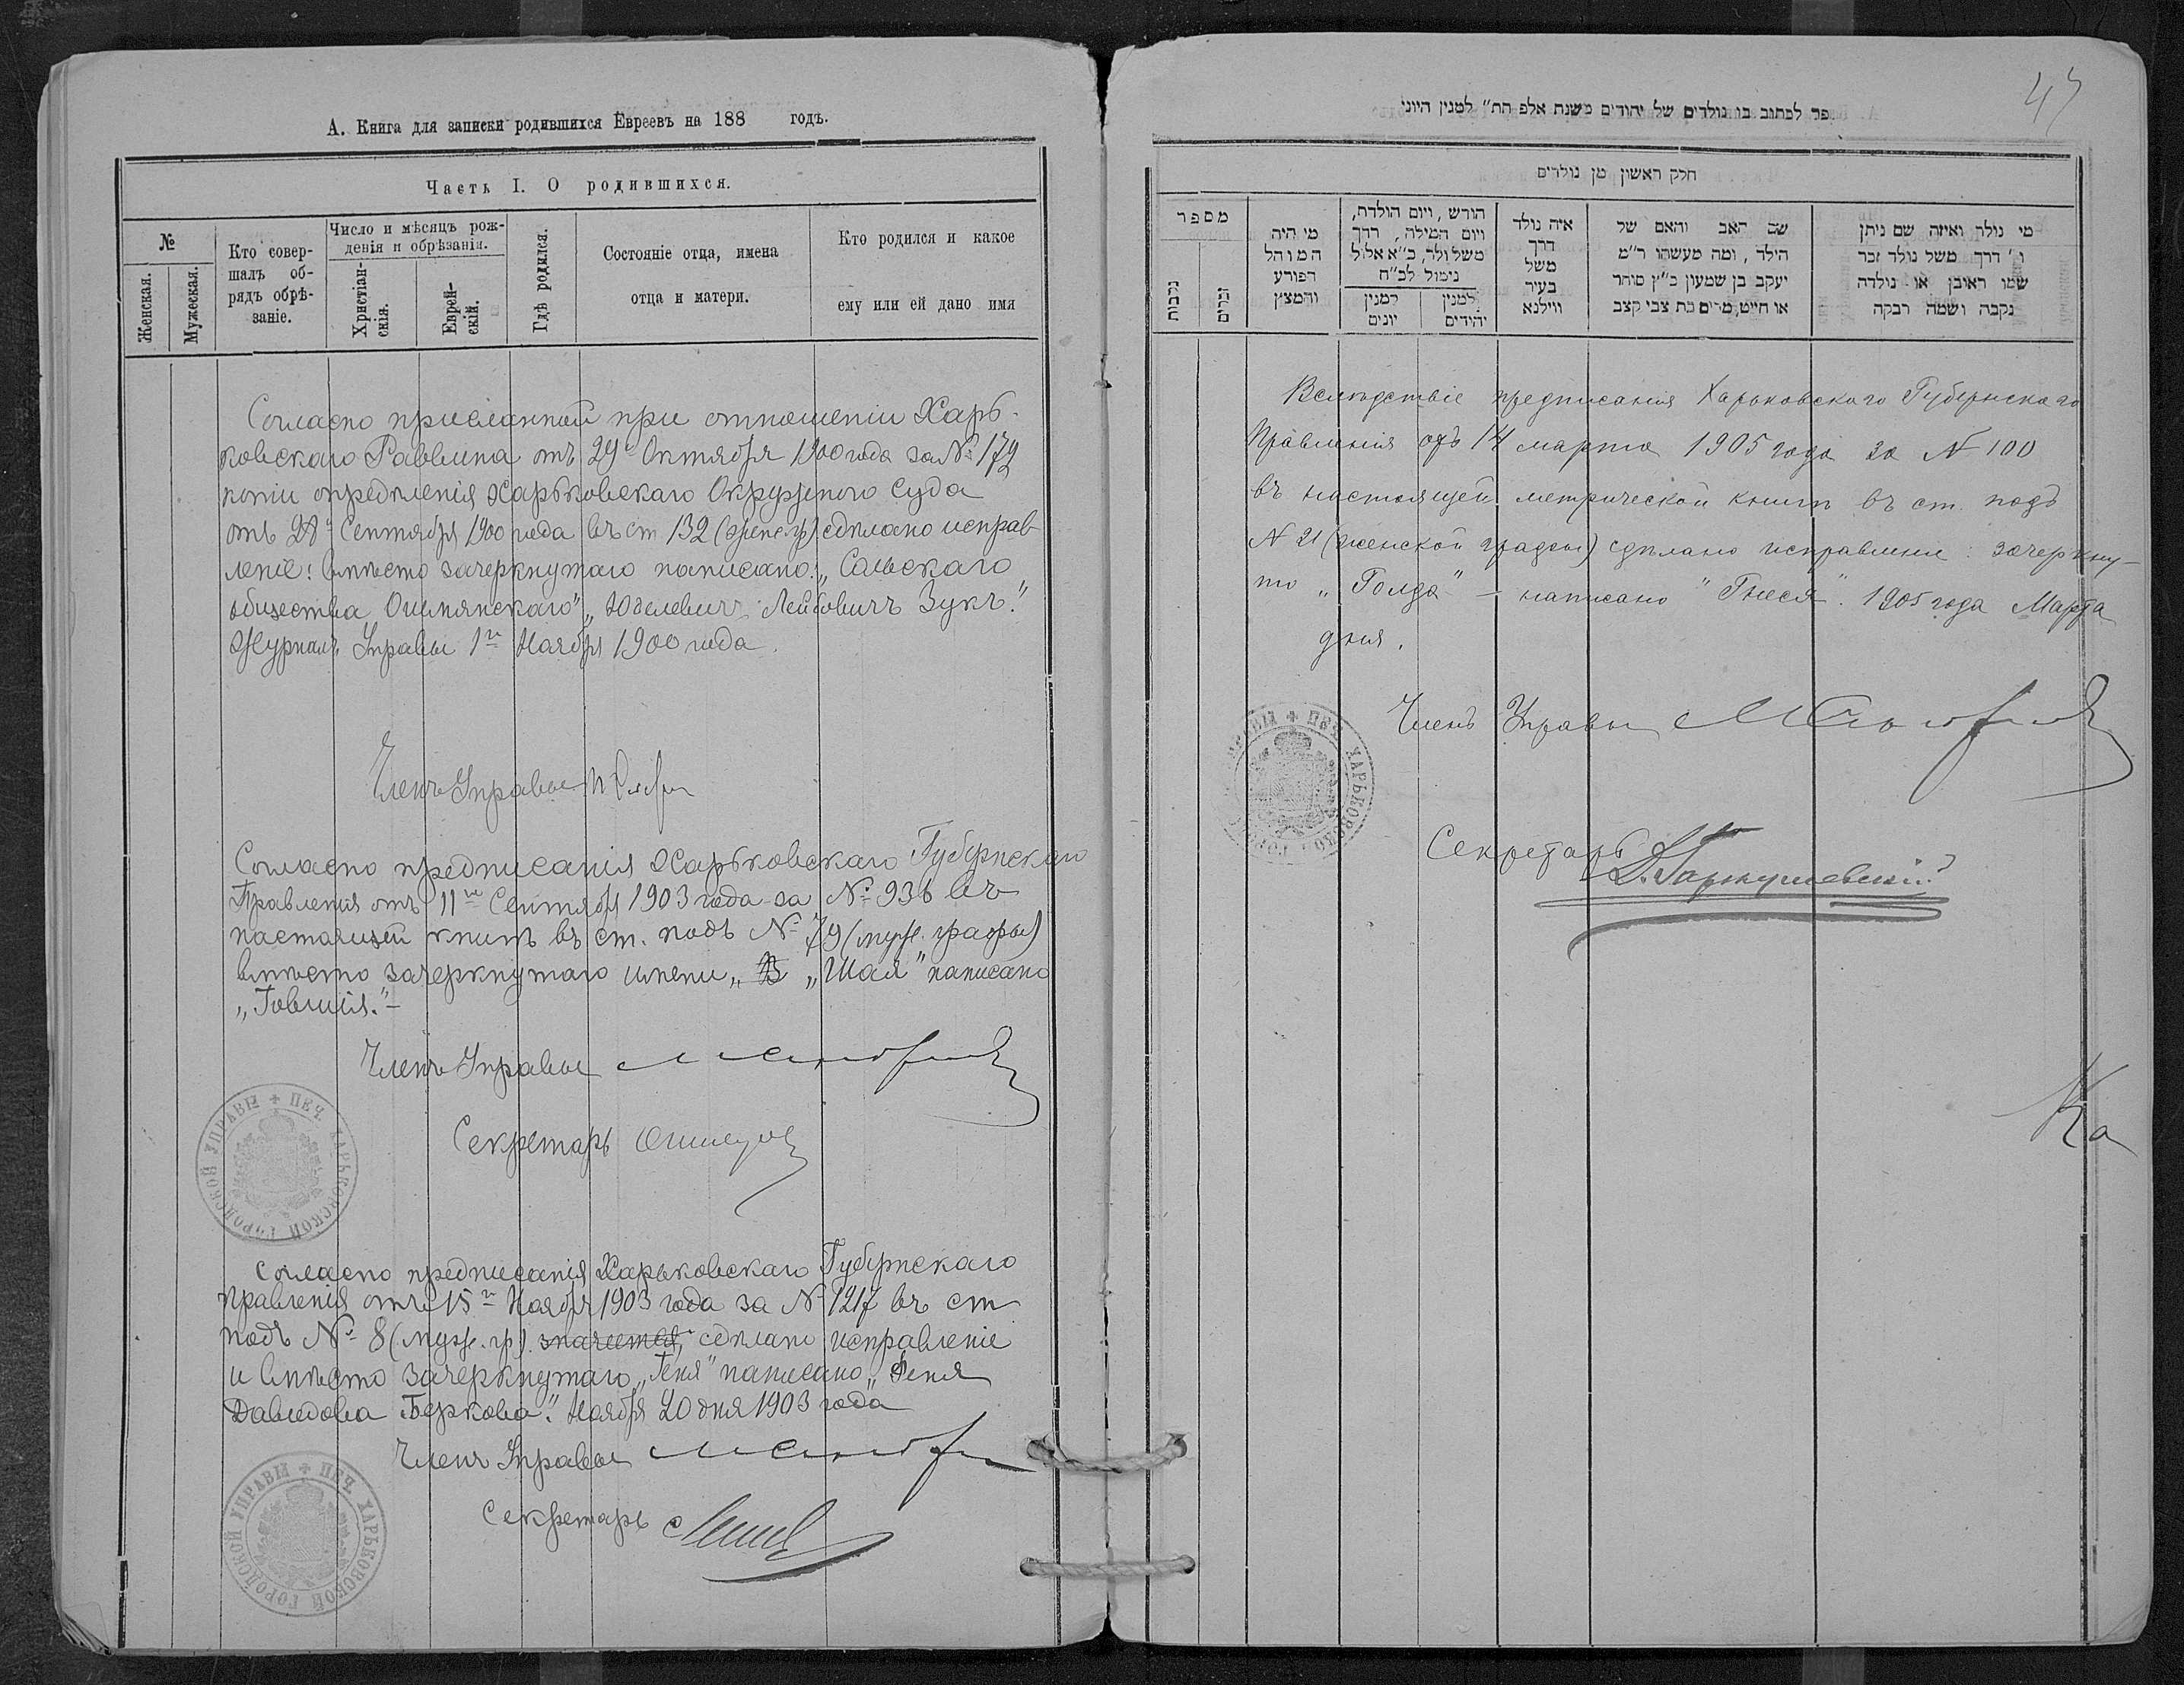 А. Книга для записки родившихся Евреевъ на 188 годъ.
Часть I. О родившихся.
№
Женская.
Мужеская.
Кто совер-
шалъ об-
рядъ обрѣ-
заніе.
Число и мѣсяцъ рож-
денія и обрѣзанія.
Христіан-
скія.
Еврей-
скій.
Гдѣ родился.
Состояніе отца, имена
отца и матери.
Кто родился и какое
ему или ей дано имя
Согласно присланной при отношеніи Харь-
ковскаго Раввина отъ 29 Октября 1900 года за № 179
копіи опредѣленія Харьковскаго Окружного Суда
отъ 28 Сентября 1900 года въ ст 132 (женс. гр) сдѣлано исправ-
леніе: вмѣсто зачеркнутаго написано: „
общества Ошмянскаго" „Юделевичъ Лейбовичъ Зукъ."
Журналъ Управы 1го Ноября 1900 года.
Членъ Управы
Согласно предписанія Харьковскаго Губернскаго
Правленія отъ 11го Сентября 1903 года за № 936 въ
настоящей книгѣ въ ст. подъ № 79 (муж. графы)
вмѣсто зачеркнутаго имени „В „Шая" написано
„Товшія."
Членъ Управы
Секретарь
Согласно предписанія Харьковскаго Губернскаго
Правленія отъ 15го Ноября 1903 года за № 1217 въ ст
подъ № 8 (муж. гр). значется, сдѣлано исправленіе
и вмѣсто зачеркнутаго „Геня" написано „
Давидова Беркова". Ноября 20 дня 1903 года
Членъ Управы
Секретарь
ПЕЧ. ХАРЬКОВСКОЙ ГОРОДСКОЙ УПРАВЫ
ПЕЧ. ХАРЬКОВСКОЙ ГОРОДСКОЙ УПРАВЫ
47
פר לכתוב בו נולדים של יהודים משנת אלפ תת״ למנין היוני
חלק ראשון מן נולדים
מספר
נקבות
זכרים
מי היה
המוהל
הפורע
והמצץ
חורש, ויום הולדת,
ויום המילה, דרך
משל ולד, כ״א אלול
נימול לכ״ח
למנין
יונים
למנין
יהודים
איה נולד
דרך
משל
בעיר
ווילנא
שם האב והאם של
הילד, ומה מעשהו ר״מ
יעקב בן שמעון כ״ץ סוחר
או חייט, מרים בת צבי קצב
מי נולד ואיזה שם ניתן
ו׳ דרך משל נולד זכר
שמו ראובן או נולדה
נקבה ושמה רבקה
Вслѣдствіе предписанія Харьковскаго Губернскаго
Правленія отъ 14 марта 1905 года за № 100
въ настоящей метрической книгѣ въ ст. подъ
№ 21 (женской графы) сдѣлано исправленіе: зачеркну-
то „Голда" – написано "Гнеся". 1905 года Марта
дня.
Членъ Управы
Секретарь
ПЕЧ. ХАРЬКОВСКОЙ ГОРОДСКОЙ УПРАВЫ
Ка